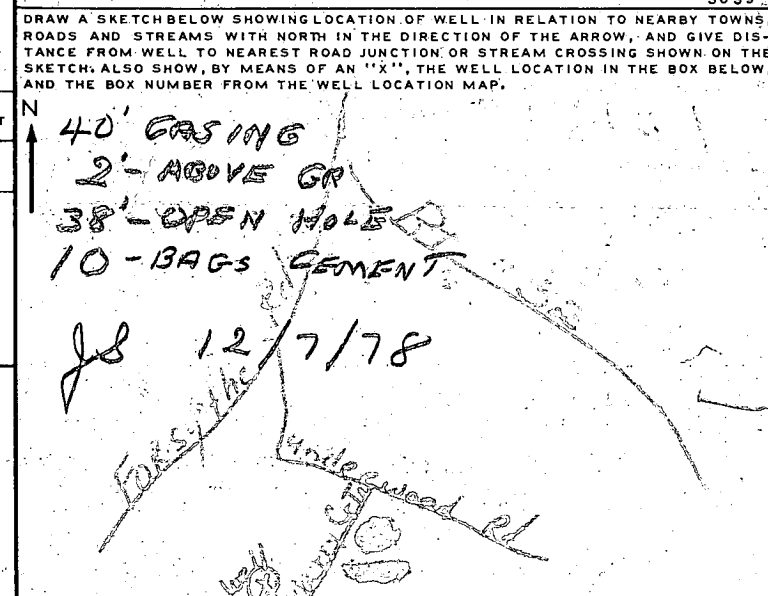 DRAW A SKETCH BELOW SHOWING LOCATION OF WELL IN RELATION TO NEARBY TOWNS,
ROADS AND STREAMS WITH NORTH IN THE DIRECTION OF THE ARROW, AND GIVE DIS-
TANCE FROM WELL TO NEAREST ROAD JUNCTION OR STREAM CROSSING SHOWN ON THE
SKETCH. ALSO SHOW, BY MEANS OF AN "X", THE WELL LOCATION IN THE BOX BELOW,
AND THE BOX NUMBER FROM THE WELL LOCATION MAP.
N
40' CASING
2'- ABOVE GR
38'- OPEN HOLE
10 - BAGS CEMENT
JS 12/7/78
Forsythe Rd
32
Underwood Rd
Well
X